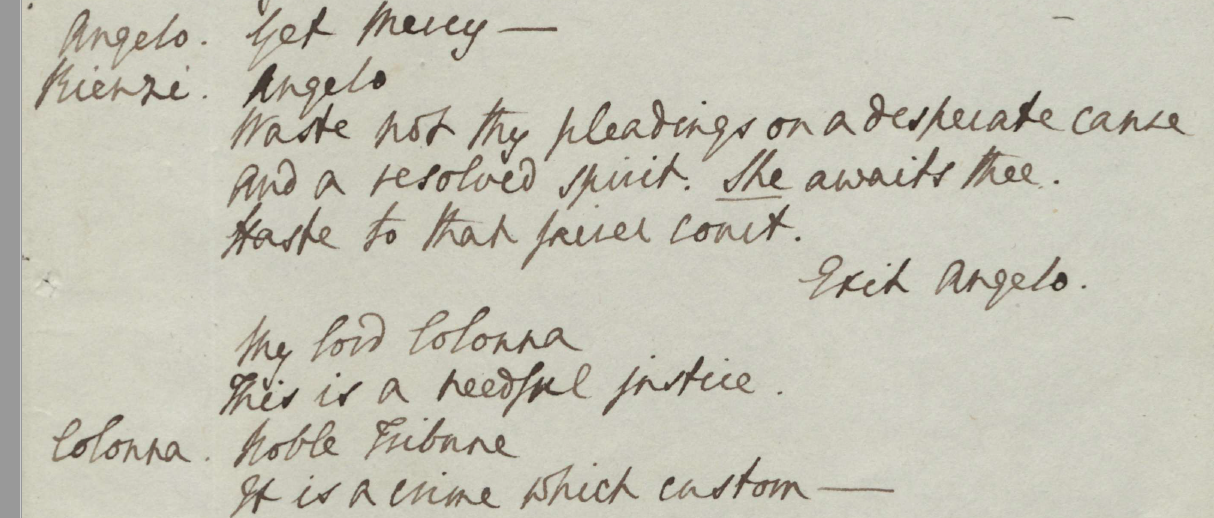 Angelo. Yet mercy —
Rienzi. Angelo
Waste not thy pleadings on a desperate cause
And a resolved spirit. She awaits thee.
Haste to that fairer court.
Exit Angelo.
My lord Colonna
This is a needful justice.
Colonna. Noble Tribune
It is a crime which custom —